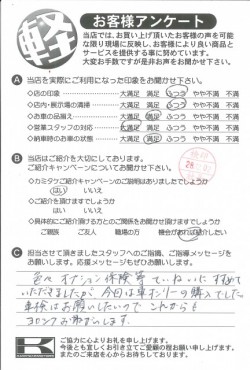 軽
お客様アンケート
当店では、お買い上げ頂いたお客様の声を可能
な限り現場に反映し、お客様により良い商品と
サービスを提供する事に努めています。
大変お手数ですが是非お声をお聞かせ下さい。
A 当店を実際にご利用になった印象をお聞かせ下さい。
◇店の印象 大満足 満足 ふつう やや不満 不満
◇店内・展示場の清掃 大満足 満足 ふつう やや不満 不満
◇お車の品揃え 大満足 満足 ふつう やや不満 不満
◇営業スタッフの対応 大満足 満足 ふつう やや不満 不満
◇納車時のお車の状態 大満足 満足 ふつう やや不満 不満
B 当店はご紹介を大切にしております。
ご紹介キャンペーンについてお聞かせ下さい。
◇カミタケご紹介キャンペーンのご説明はありましたでしょうか
はい いいえ
◇ご紹介を頂けますでしょうか
はい いいえ
◇具体的にご紹介頂ける方とのご関係をお聞かせ下さい
ご親族 ご友人 職場の方 機会があれば紹介したい
C 担当させて頂きましたスタッフへのご指摘、ご指導メッセージを
お願いします。応援メッセージもぜひお願いします。
色々オプション保険等ていねいにすすめて
いただきましたが今回は車オンリーの購入でした。
車検はお願いしたいのでこれからも
ヨロシクお願いします。
ご協力に心よりお礼を申し上げます。
今後とも宜しくお引き立てご愛顧の程お願い申し上げます。
またのご来店を心からお待ちしております。